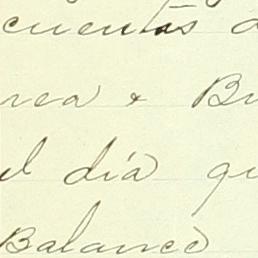 cuentas
rea & Bu
el día qu
Balance